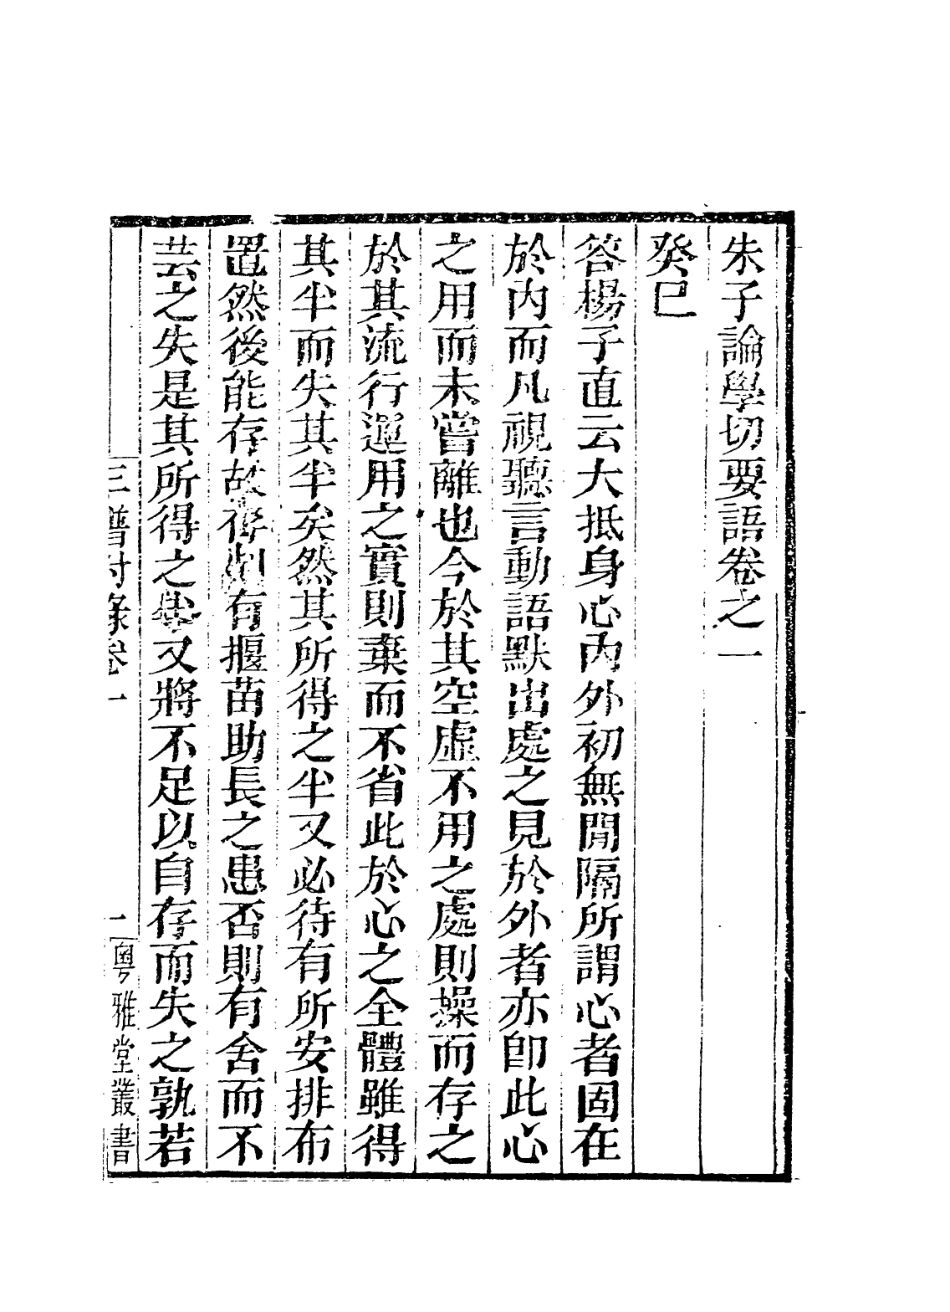 朱子論學切要語卷之一
癸巳
答楊子直云大抵身心內外初無閒隔所謂心者固在
於內而凡視聽言動語默出處之見於外者亦卽此心
之用而未嘗離也今於其空虛不用之處則操而存之
於其流行運用之實則棄而不省此於心之全體雖得
其半而失其半矣然其所得之半又必待有所安排布
置然後能存故存則有揠苗助長之患否則有舍而不
芸之失是其所得之半又將不足以自存而失之孰若
三譜附錄卷一
一
粵雅堂叢書